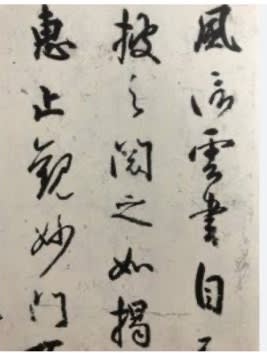 風雲書目
披之閱之如揭
惠止觀妙門